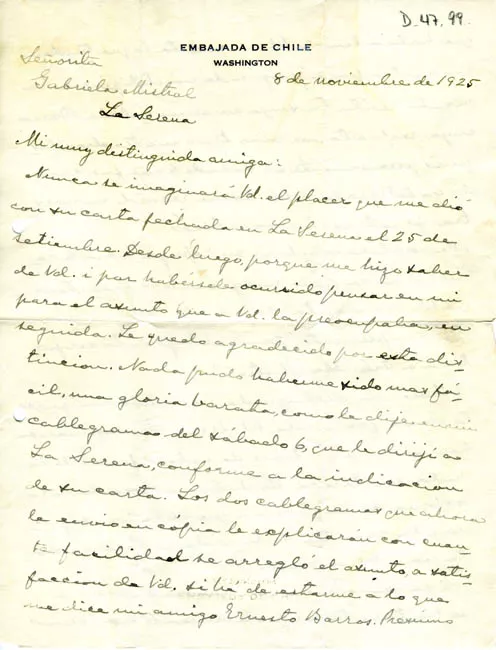 D-47.99.
EMBAJADA DE CHILE
WASHINGTON
8 de noviembre de 1925
Señorita
Gabriela Mistral
La Serena
Mi muy distinguida amiga:
Nunca se imaginará Vd. el placer que me dió
con su carta fechada en La Serena el 25 de
setiembre. Desde luego, porque me hizo saber
de Vd. i por habérsele ocurrido pensar en mi
para el asunto que a Vd. la preocupaba, en
seguida. Le quedo agradecido por esta dis-
tincion. Nada pudo haberme sido mas fá-
cil, una gloria barata, como le dije en mi
cablegrama del sábado 6, que le dirijí a
La Serena, conforme a la indicacion
de su carta. Los dos cablegramas que ahora
le envio en cópia le explicarán con cuan-
ta facilidad se arregló el asunto, a satis-
faccion de Vd. si he de estarme a lo que
me dice mi amigo Ernesto Barros. Próximo